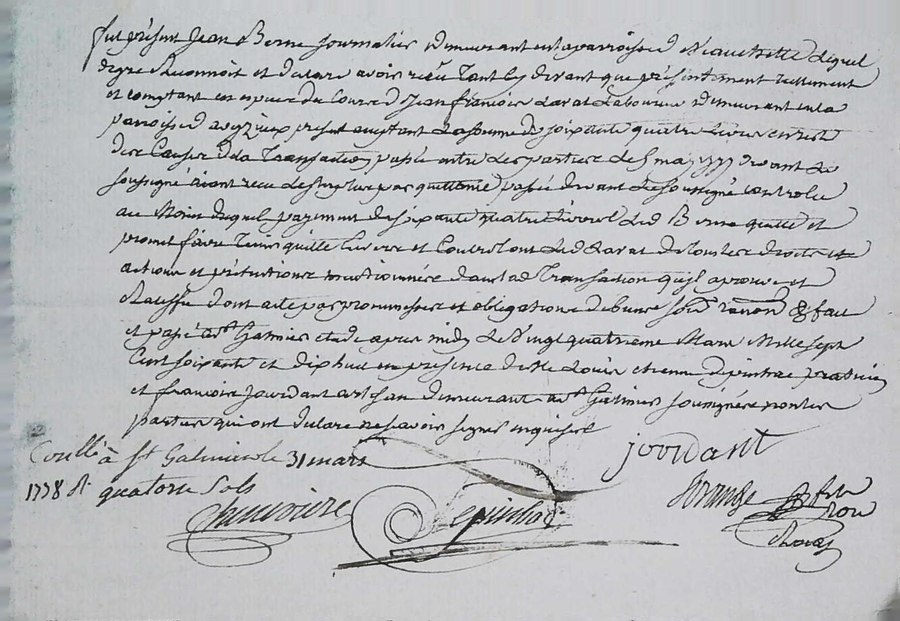 fut présent Jean Berne Journalier demeurant en la parroisse d lequel
de gre Reconnoit et declare avoir recu tant cy devant que présentement réellement
et comptant en espece du Cours de Jean françois Larat Laboureur demeurant en la
parroisse d'aveizieux présent acceptant La somme de soixante quatre Livres
des Causes de la Transaction passée entre Les parties Le 5 may 1777 devant Le
soussigné aiant recu Le surplus par quittance passée devant Le soussigné controlée
au Moien duquel payement de soixante quatre Livres Led Berne quitte et
promet faire tenir quitte Envers et Contre tous Led Larat de tous les droits et
actions et prétentions mentionnées dans lad Transaction qu'il aprouve et
Ratiffie dont acte par promesses et obligations de biens soum renon & fait
et passé a St Galmier etude apres midy Le vingt quatrieme Mars Mille sept
Cent soixante et dix huit en présence de Me Louis etienne praticien
et françois Jourdant artisan demeurant a St Galmier soussignés non les
parties qui ont declare ne scavoir signer enquises
jourdant
Conllé à St Galmier le 31 mars
1778 R. quatorze sols